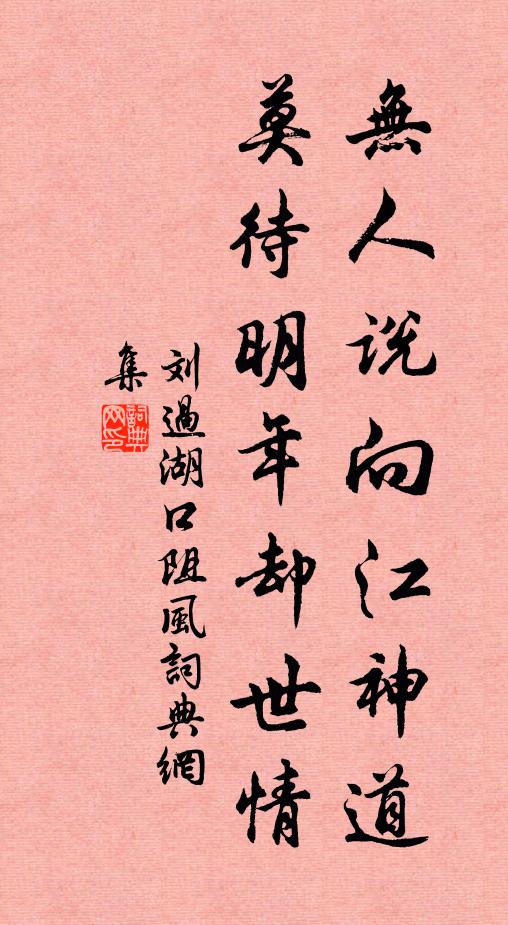 無人説向江神道
莫待明年却世情
刘過湖口阻風詞典網
集
詞典网印